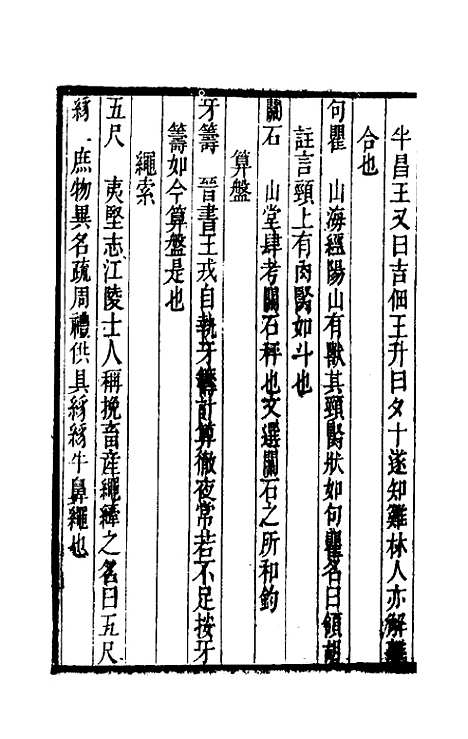 半昌王又曰吉佃王升曰夕十遂知雞林人亦解離
合也
句瞿　山海經陽山有獸其頸䏿狀如句瞿名曰領胡
註言頸上有肉䏿如斗也
關石　山堂肆考關石秤也文選關石之所和鈞
算盤
牙籌　晉書王戎自執牙籌計算徹夜常若不足按牙
籌如今算盤是也
繩索
五尺　夷堅志江陵士人稱挽畜産繩繂之名曰五尺
綔　庶物異名疏周禮供具綔綔牛鼻繩也